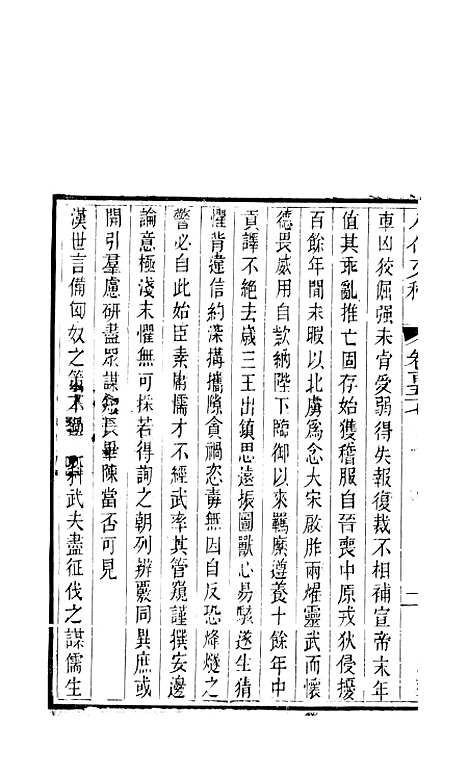 車凶狡倔强未肯受弱得失報復裁不相補宣帝末年
值其乖亂推亡固存始獲稽服自晉喪中原戎狄侵擾
百餘年間未暇以北虜爲念大宋啟胙兩燿靈武而懷
德畏威用自款納陛下臨御以來羈縻遵養十餘年中
貢譯不絕去歲三王出鎮思遠振圖獸心易駭遂生猜
懼背違信約深搆攜隙貪禍恣毒無因自反恐烽燧之
警必自此始臣素庸懦才不經武率其管窺謹撰安邊
論意極淺末懼無可採若得詢之朝列辨覈同異庶或
開引羣慮研盡眾謀長畢陳當否可見
漢世言備匈奴之策不過科武夫盡征伐之謀儒生